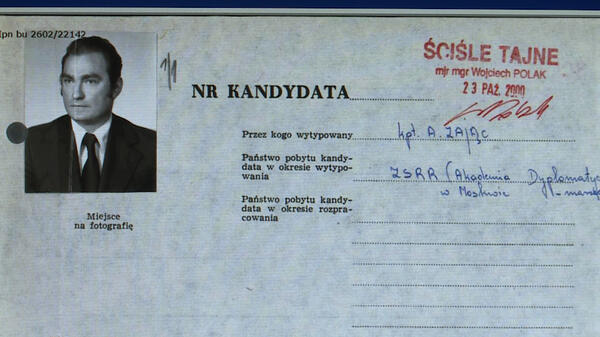 Ipn bu 2602/22142
1/1
ŚCIŚLE TAJNE
mjr mgr Wojciech POLAK
23 PAŹ. 2000
NR KANDYDATA
Przez kogo wytypowany kpt. A. ZAJĄC
Państwo pobytu kandy-
data w okresie wytypo-
wania ZSRR (Akademia Dyplomatycz
w Moskwie
Państwo pobytu kandy-
data w okresie rozpra-
cowania
Miejsce
na fotografię